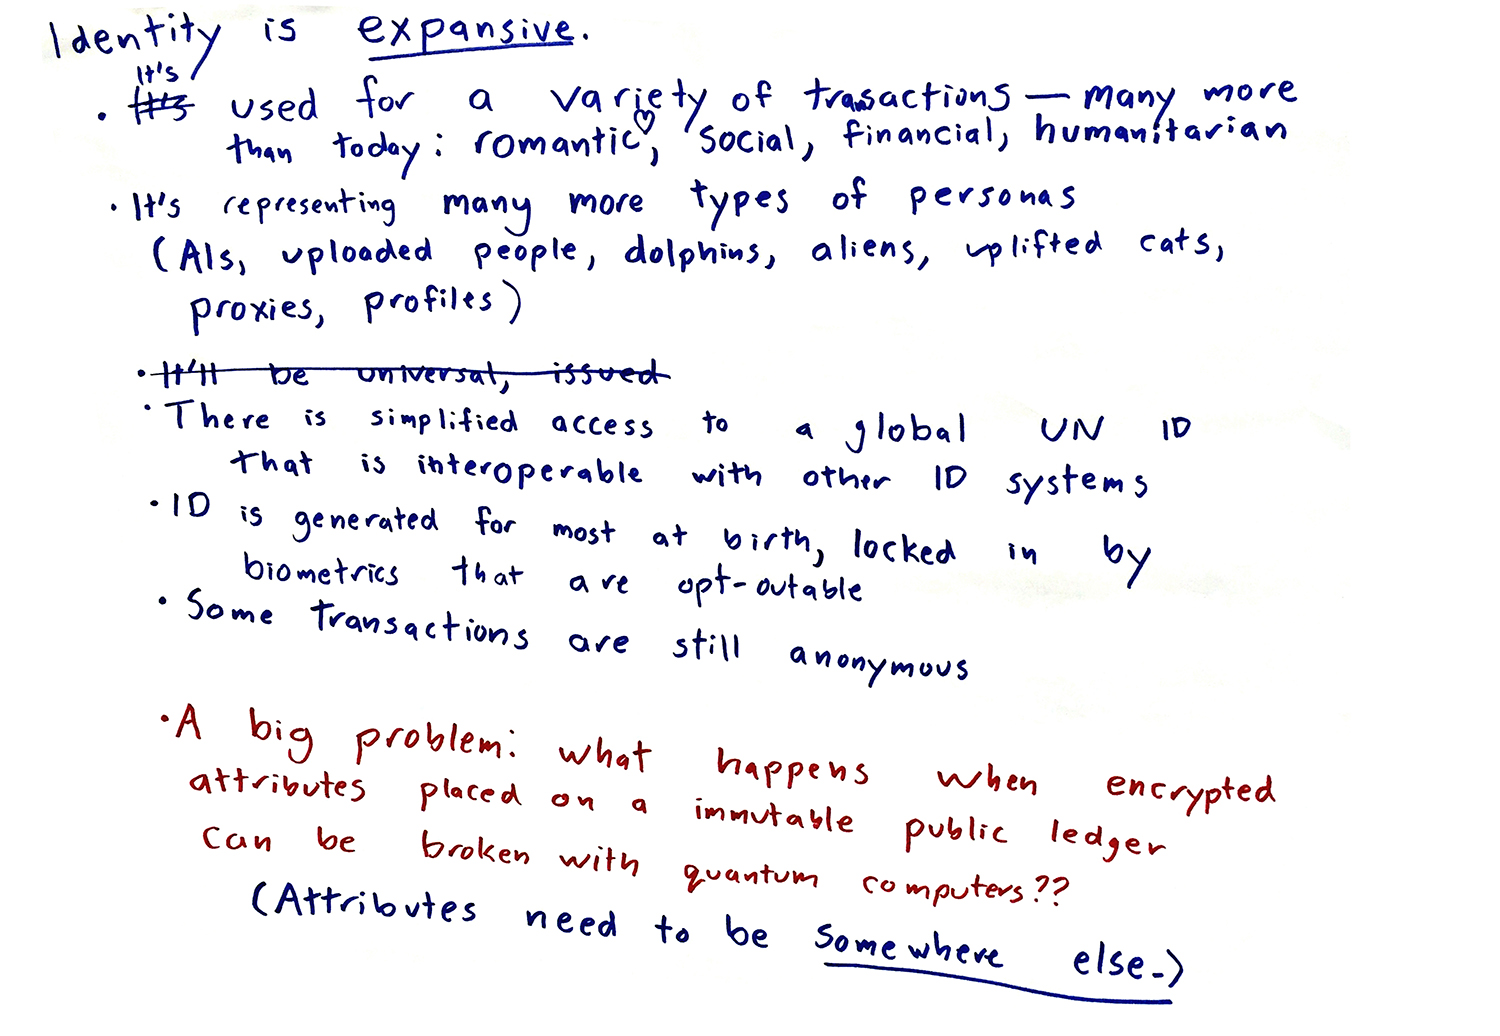 Identity is expansive.
It's
• It's used for a variety of transactions — many more
than today: romantic♡, social, financial, humanitarian
• It's representing many more types of personas
(AIs, uploaded people, dolphins, aliens, uplifted cats,
proxies, profiles)
• It'll be universal, issued
• There is simplified access to a global UN ID
that is interoperable with other ID systems
• ID is generated for most at birth, locked in by
biometrics that are opt-outable
• Some transactions are still anonymous
• A big problem: what happens when encrypted
attributes placed on a immutable public ledger
can be broken with quantum computers??
(Attributes need to be somewhere else.)